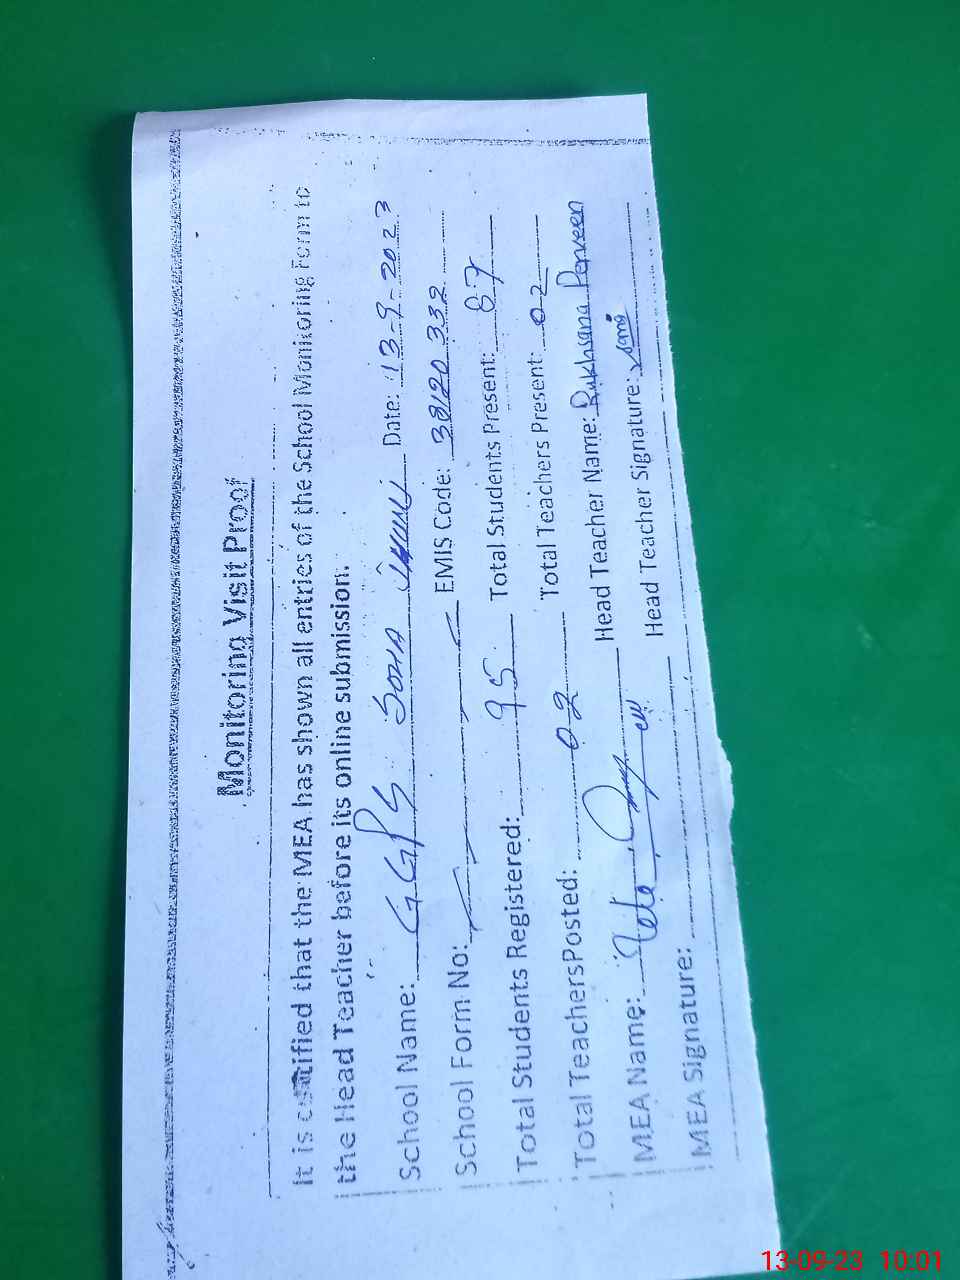 Monitoring Visit Proof
It is certified that the MEA has shown all entries of the School Monitoring Form to
the Head Teacher before its online submission.
School Name: GGPS Date: 13-9-2023
School Form No: EMIS Code: 38120332
Total Students Registered: 95 Total Students Present: 87
Total TeachersPosted: 02 Total Teachers Present: 02
MEA Name: Head Teacher Name: Rukhsana Perveen
MEA Signature: Head Teacher Signature:
13-09-23 10:01